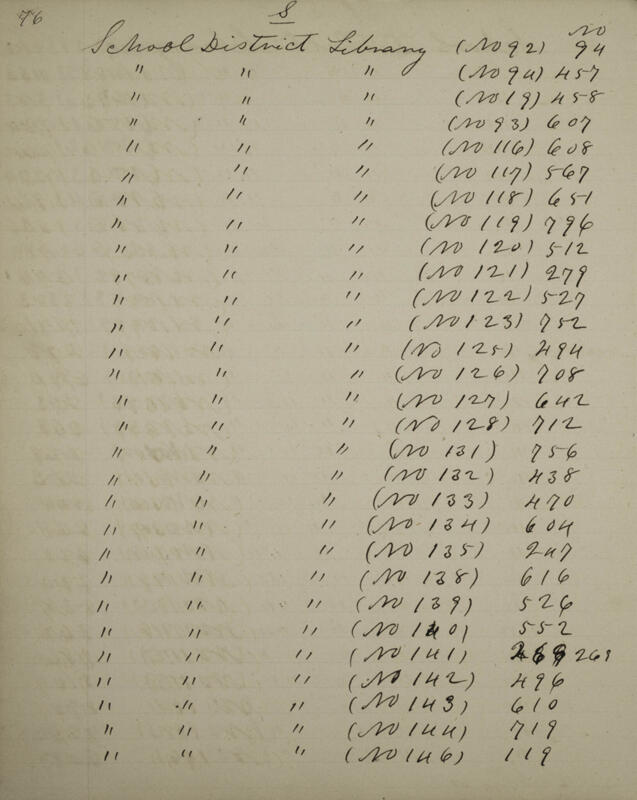 76
S
No
School District Library (No 92) 94
" " " (No 94) 457
" " " (No 19) 458
" " " (No 93) 607
" " " (No 116) 608
" " " (No 117) 567
" " " (No 118) 651
" " " (No 119) 796
" " " (No 120) 512
" " " (No 121) 279
" " " (No 122) 527
" " " (No 123) 752
" " " (No 125) 494
" " " (No 126) 708
" " " (No 127) 642
" " " (No 128) 712
" " " (No 131) 756
" " " (No 132) 438
" " " (No 133) 470
" " " (No 134) 604
" " " (No 135) 247
" " " (No 138) 616
" " " (No 139) 526
" " " (No 140) 552
" " " (No 141) 269
" " " (No 142) 496
" " " (No 143) 610
" " " (No 144) 719
" " " (No 146) 119